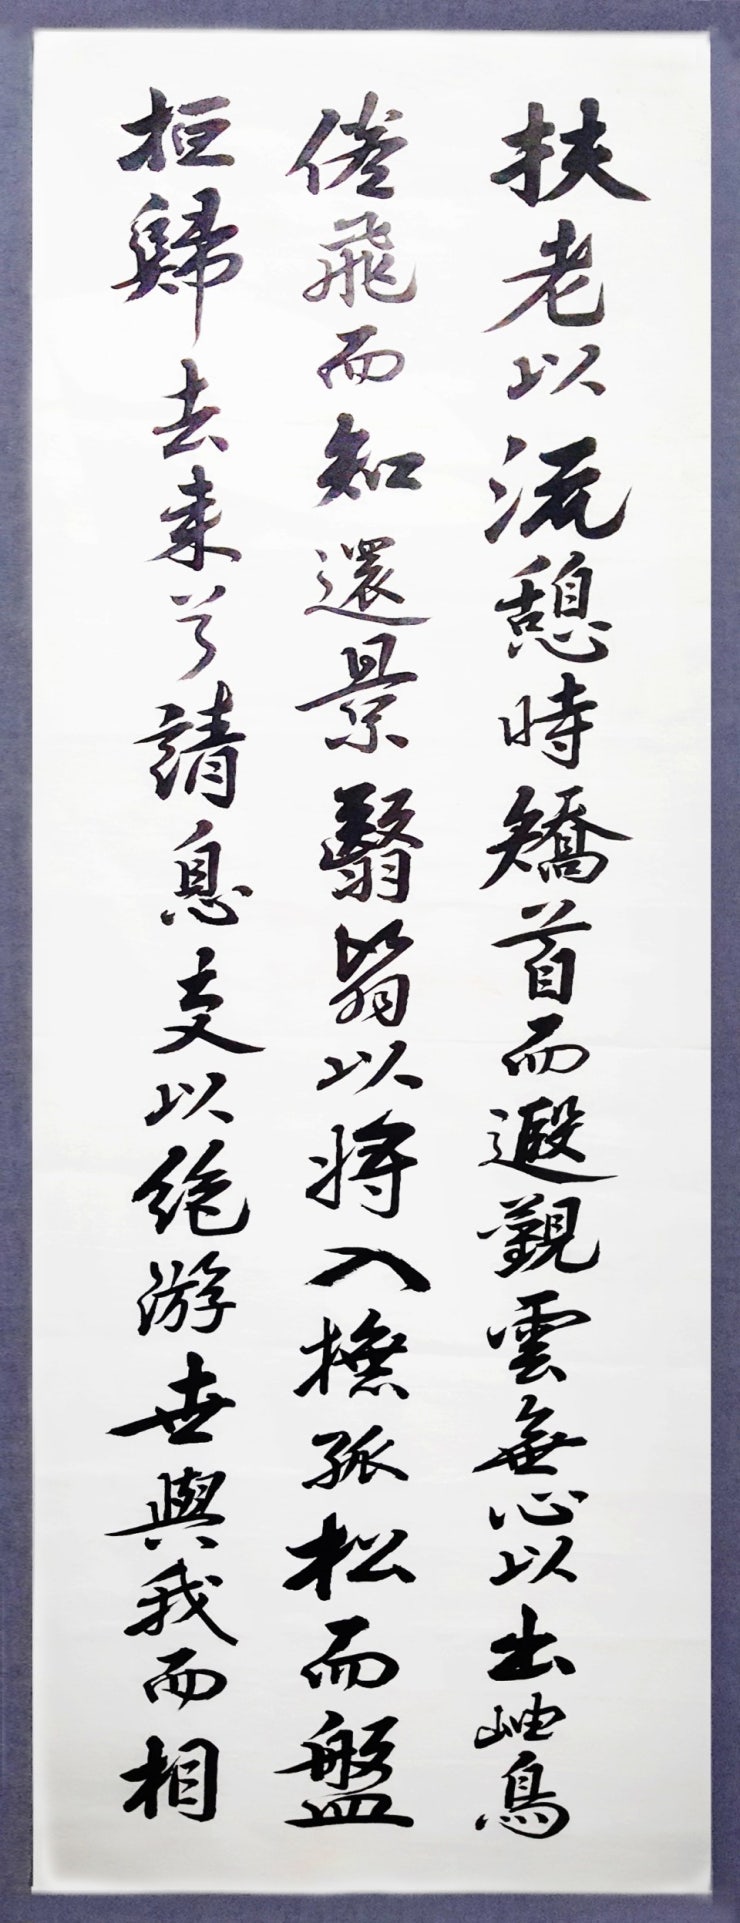 扶老以流憩時矯首而遐觀雲無心以出岫鳥
倦飛而知還景翳翳以將入撫孤松而盤
桓歸去來兮請息交以絶游世與我而相